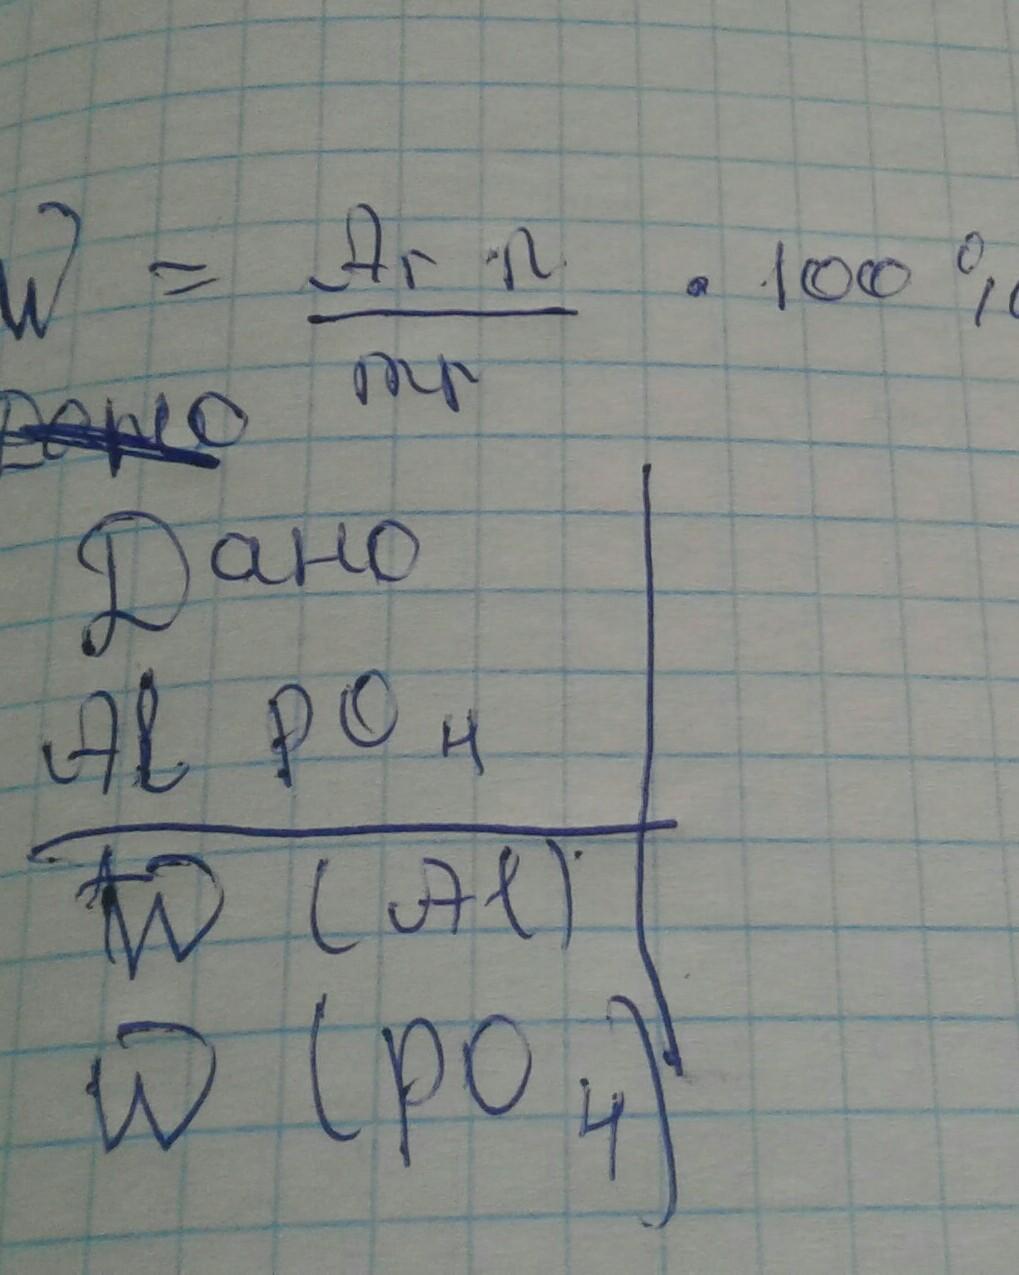 W = Ar · n / mr · 100 %
Дано
Al PO4
W (Al)
W (PO4)